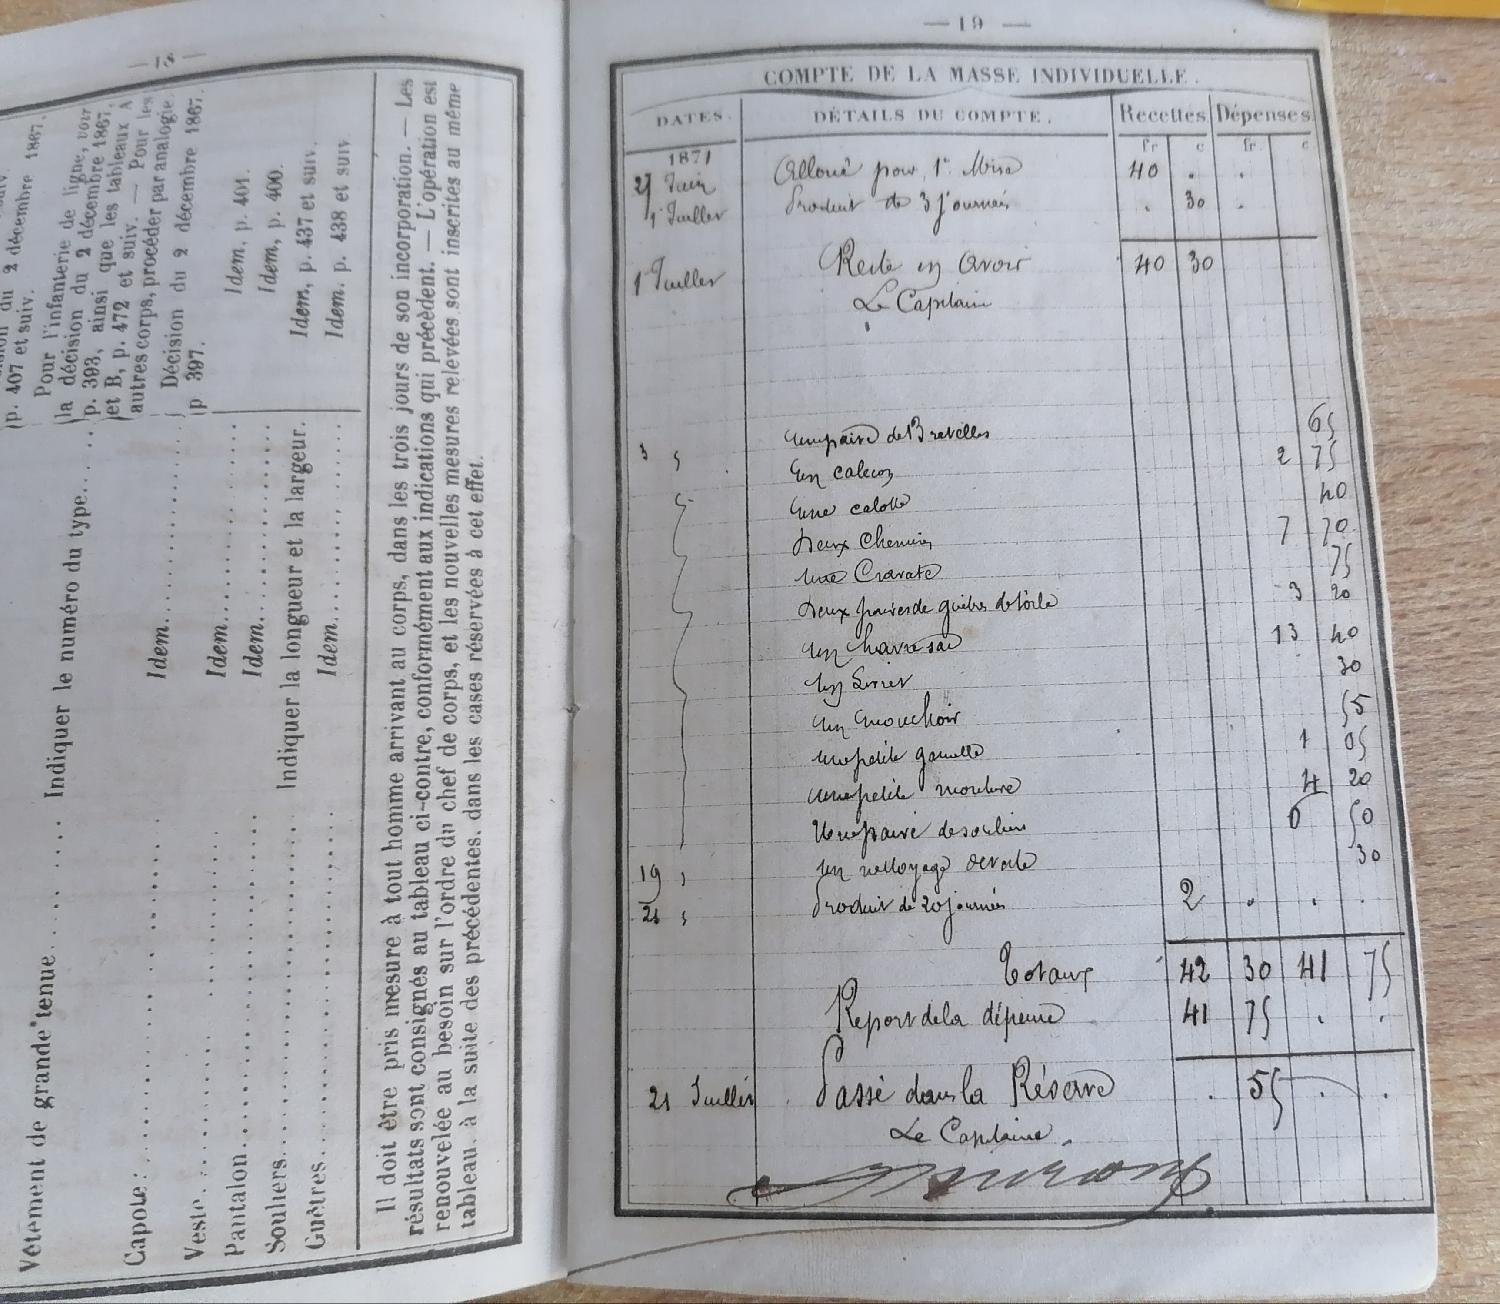 — 18 —
décision du 2 décembre 1867.
p. 407 et suiv.
Pour l'infanterie de ligne, voir
la décision du 2 décembre 1867,
p. 393, ainsi que les tableaux A
et B, p. 472 et suiv. — Pour les
autres corps, procéder par analogie.
Décision du 2 décembre 1867.
p 397.
Idem, p. 401.
Idem, p. 400.
Idem, p. 437 et suiv.
Idem. p. 438 et suiv
Vêtement de grande tenue.... Indiquer le numéro du type...
Capote : Idem
Veste Idem
Pantalon Idem
Souliers Indiquer la longueur et la largeur.
Guêtres Idem
Il doit être pris mesure à tout homme arrivant au corps, dans les trois jours de son incorporation. — Les
résultats sont consignés au tableau ci-contre, conformément aux indications qui précèdent. — L'opération est
renouvelée au besoin sur l'ordre du chef de corps, et les nouvelles mesures relevées sont inscrites au même
tableau, à la suite des précédentes, dans les cases réservées à cet effet.
— 19 —
COMPTE DE LA MASSE INDIVIDUELLE.
DATES. DÉTAILS DU COMPTE. Recettes Dépenses
fr c fr. c
1871
27 Juin Alloué pour 1re Mise 40 . .
1er Juillet Produit de 3 journées . 30 .
1er Juillet Reste en Avoir 40 30
Le Capitaine
3 " une paire de Bretelles 65
un caleçon 2 75
une calotte 40
Deux Chemises 7 70
une Cravate 75
Deux paires de guêtres de toile 3 20
un havresac 13 40
un 30
un mouchoir 55
une petite gamelle 1 05
une petite monture 4 20
Une paire de souliers 6 50
19 " un nettoyage 30
21 " Produit de 20 journées 2 . . .
Totaux 42 30 41 75
Report de la dépense 41 75 . .
21 Juillet Passé dans la Réserve . 55 . .
Le Capitaine.